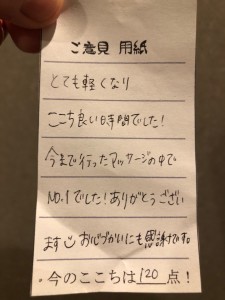 ご意見 用紙
とても軽くなり
ここち良い時間でした!
今まで行ったマッサージの中で
NO.1でした!ありがとうござい
ます お心づかいにも感謝です。
今のここちは120点!